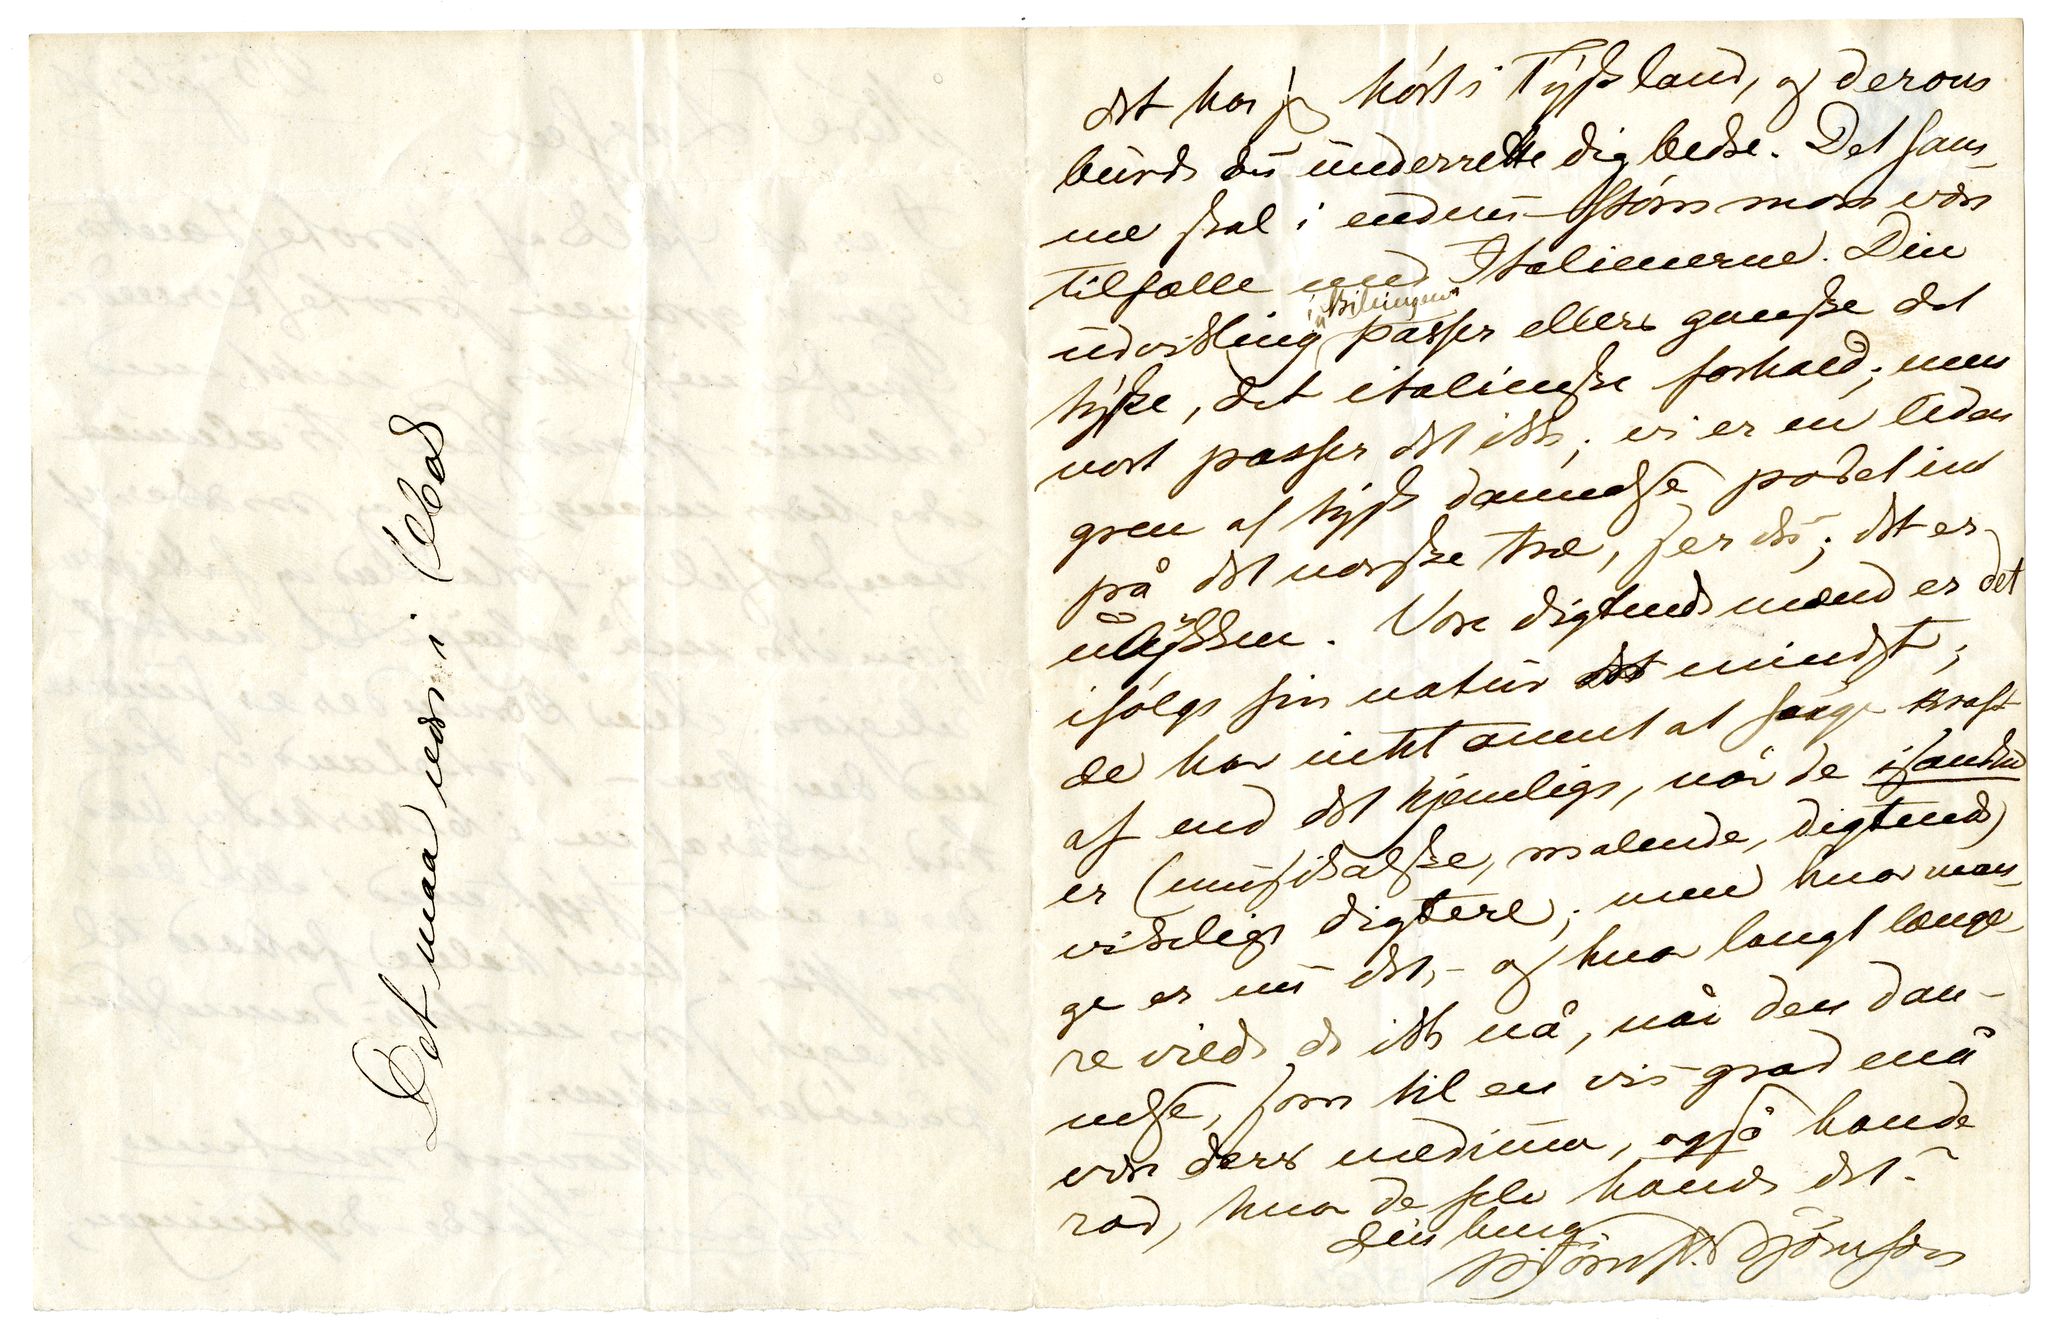 Det maa være i
det har jeg hørt i Tyskland, og derom
burde du underrette dig bedre. Det sam-
me skal i endnu større mon være
tilfælle med Italienerne. Din
udvikling i
passer ellers ganske det
tyske, det italienske forhold; men
vort passer det ikke; vi er en liden
gren af tysk dannelse podet ind
på det norske træ, ser du; det er
ulykken. Vore digtende mænd er det
ifølge sin natur mindst;
de har intet annet at suge kraft
af end det hjemlige, når de
er (musikalske, malende, digtende)
virkelige digtere; men hvor man-
ge er nu det, – og hvor langt længe-
re vilde de ikke nå, når den dan-
nelse, som til en vis grad må
være deres medium, også havde
rod, hvor de selv havde det.
din ven
Bjørnst. Bjørnson